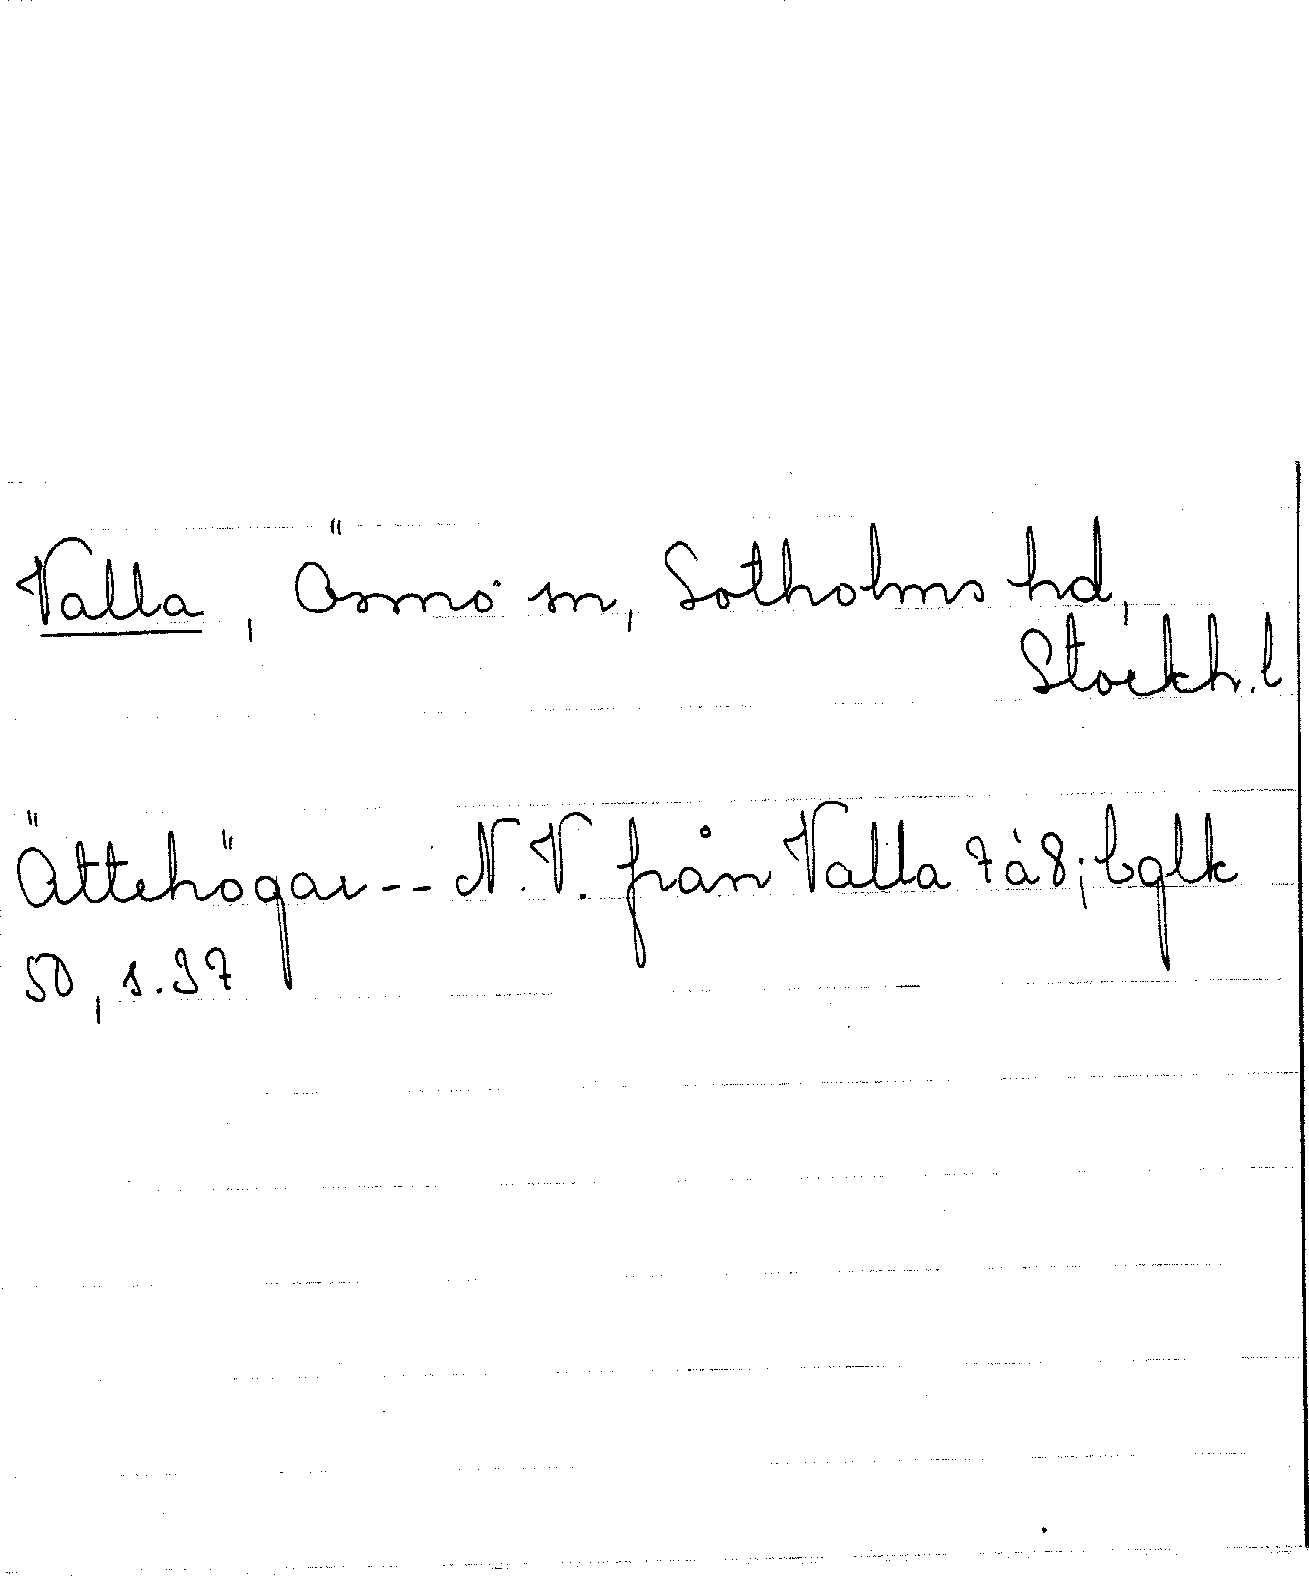 Valla, Ösmo sn, Sotholms hd,
Stockh.l
Ättehögar-- N.V. från Valla 7à8; bglk
50, s.37